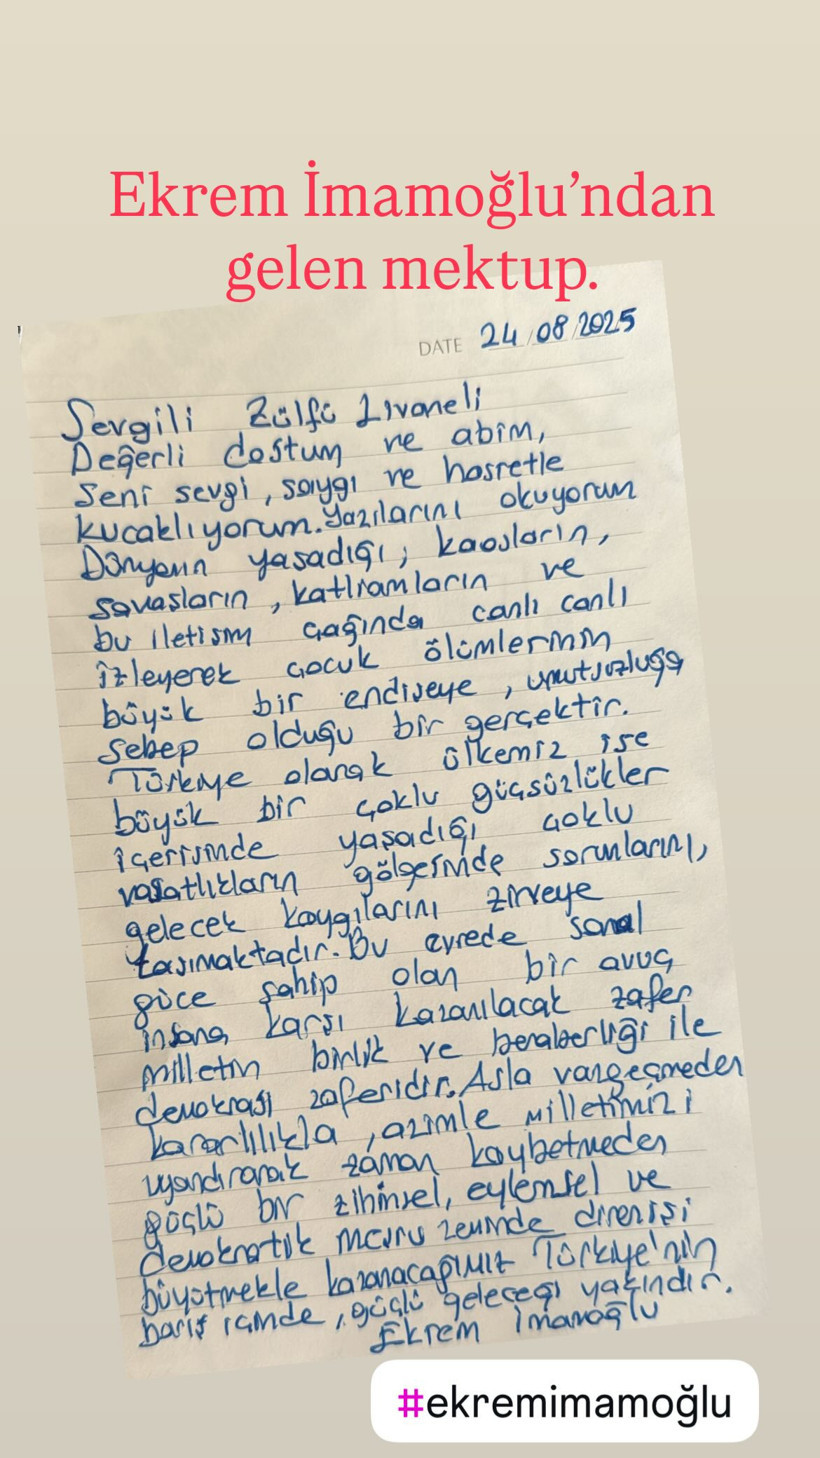 Ekrem İmamoğlu'ndan
gelen mektup.
DATE 24/08/2025
Sevgili Zülfü Livaneli
Değerli dostum ve abim,
Seni sevgi, saygı ve hasretle
kucaklıyorum. Yazılarını okuyorum
Dünyanın yaşadığı, kaosların,
savaşların, katliamların ve
bu iletişim çağında canlı canlı
izleyerek çocuk ölümlerinin
büyük bir endişeye, umutsuzluğa
sebep olduğu bir gerçektir.
Türkiye olarak ülkemiz ise
büyük bir çoklu güçsüzlükler
içerisinde yaşadığı çoklu
gölgesinde sorunlarını,
gelecek kaygılarını zirveye
taşımaktadır. Bu evrede sanal
güce sahip olan bir avuç
insana karşı kazanılacak zafer
milletin birlik ve beraberliği ile
demokrasi zaferidir. Asla vazgeçmeden
kararlılıkla, azimle milletimizi
uyandırarak zaman kaybetmeden
güçlü bir zihinsel, eylemsel ve
demokratik meşru zeminde direnişi
büyütmekle kazanacağımız Türkiye'nin
barış içinde, güçlü geleceği yakındır.
Ekrem İmamoğlu
#ekremimamoğlu